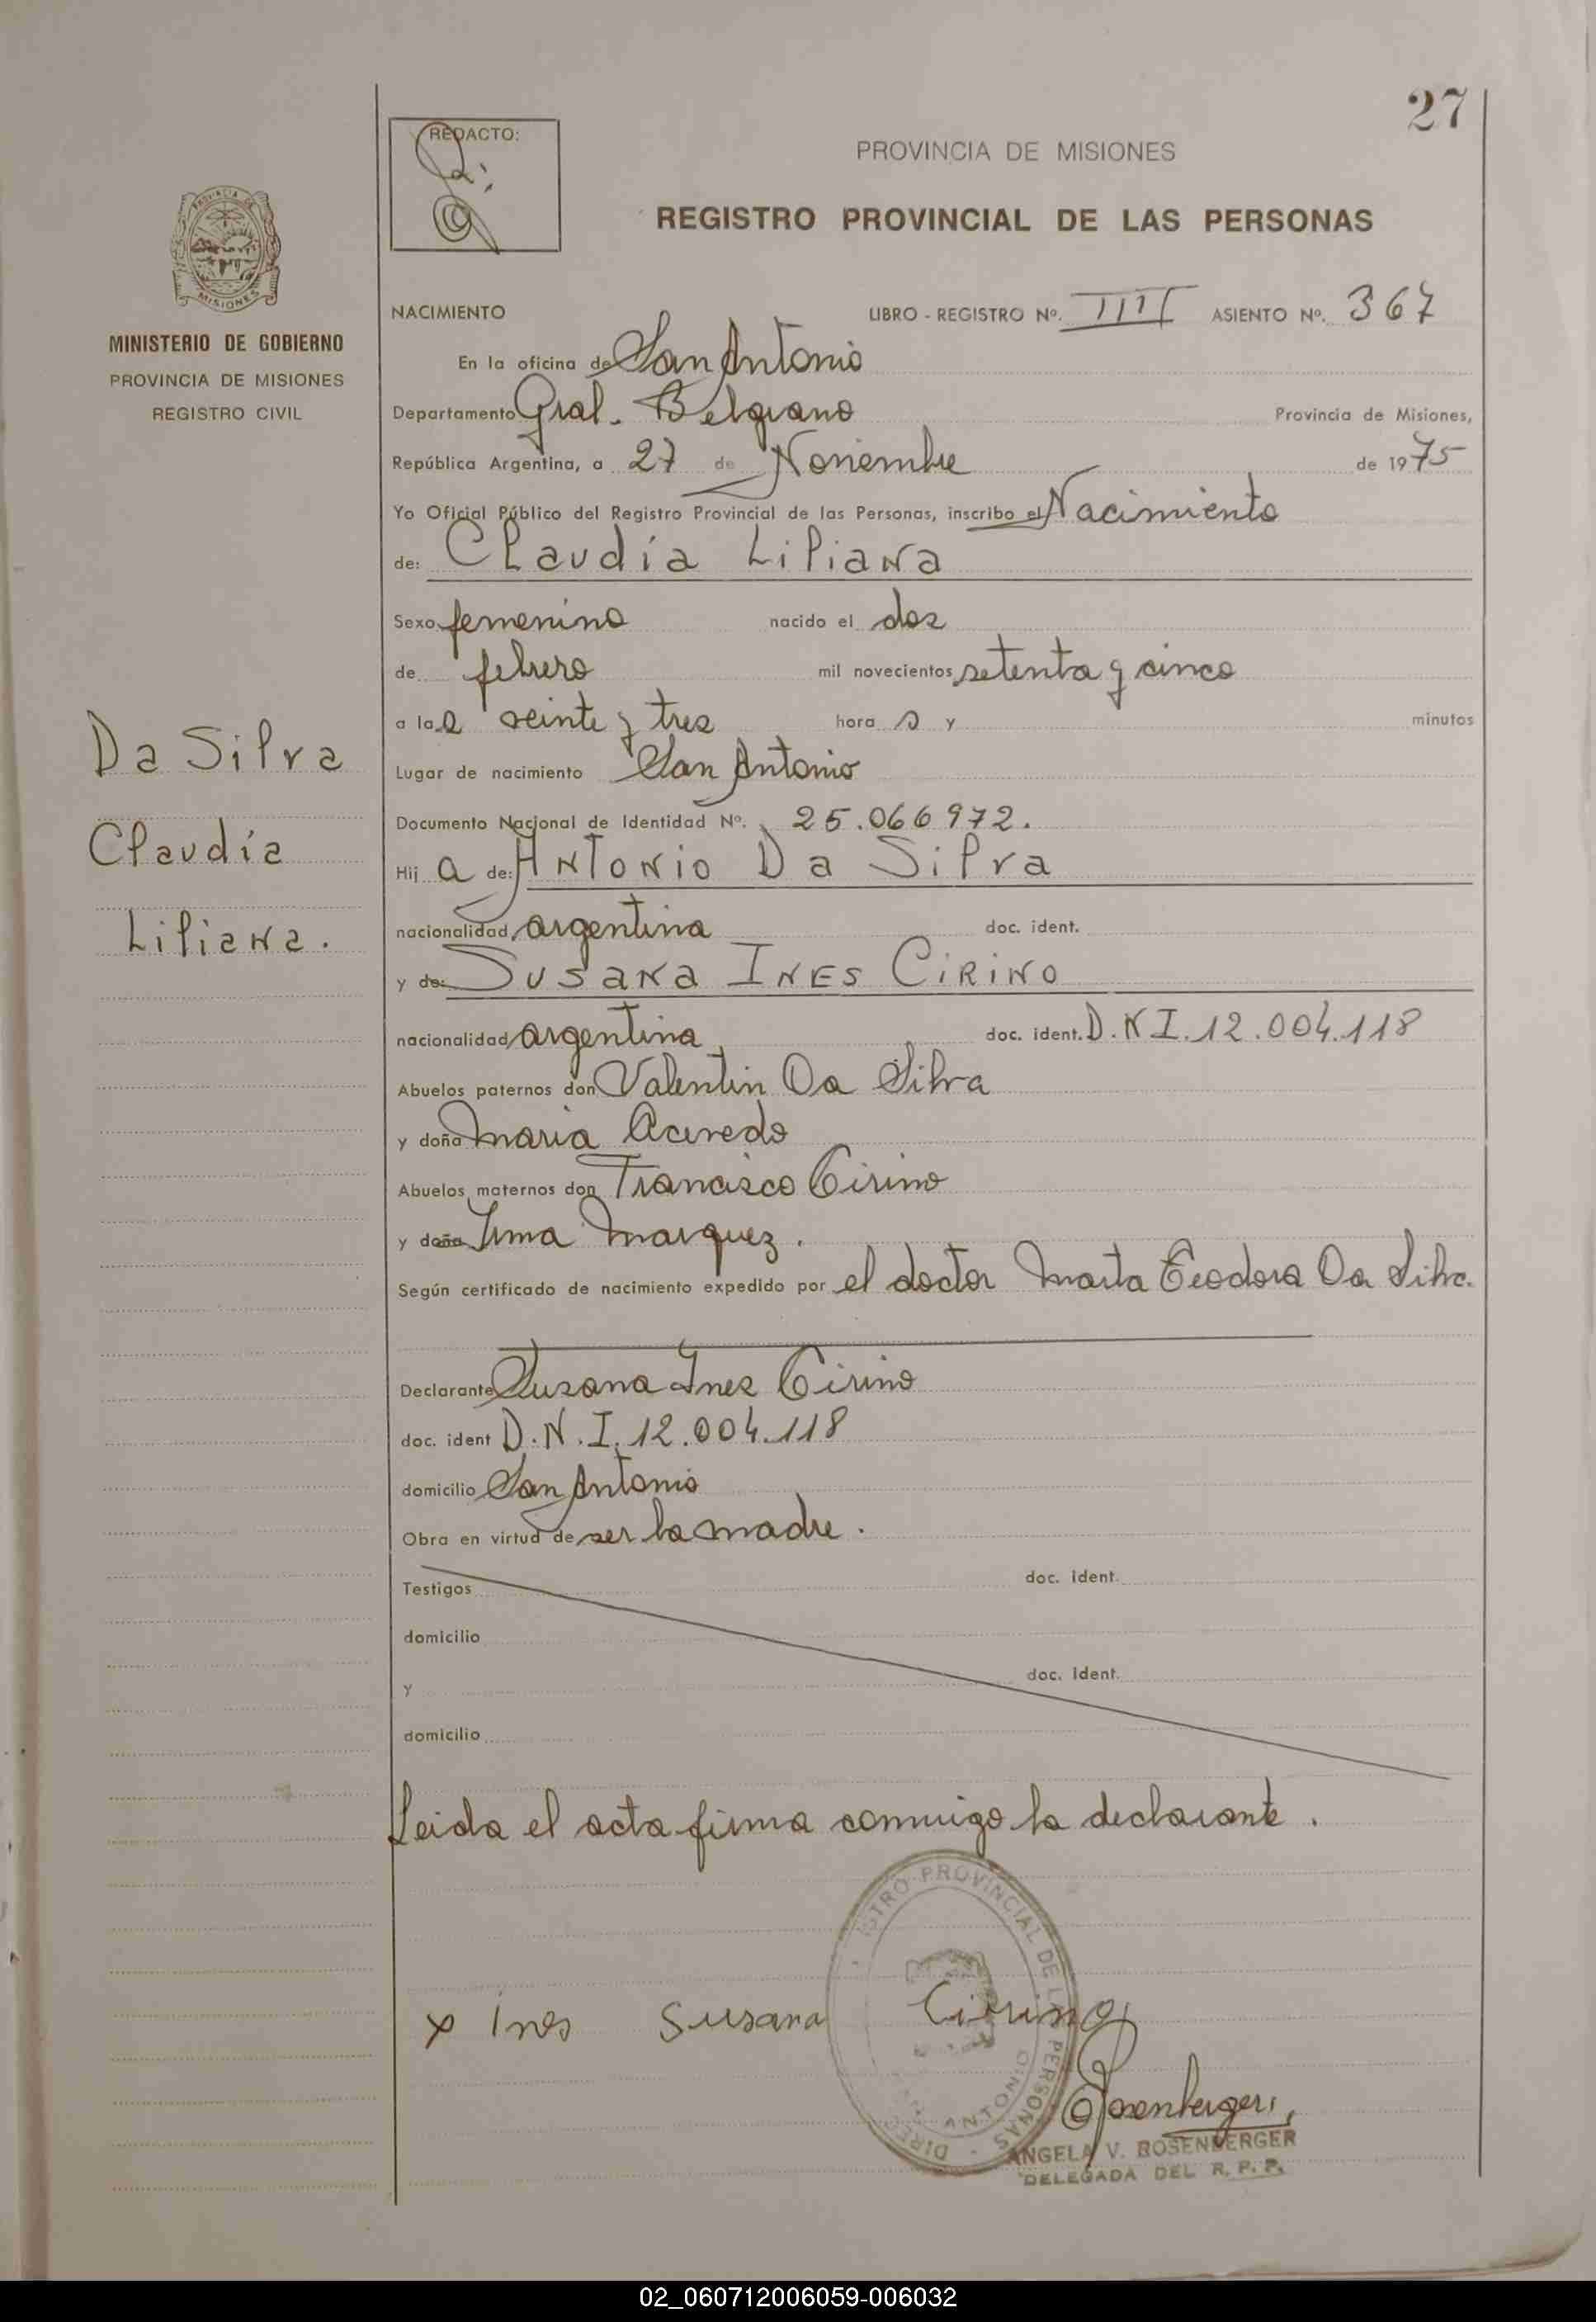 27
REDACTO:
PROVINCIA DE MISIONES
REGISTRO PROVINCIAL DE LAS PERSONAS
MISIONES
MINISTERIO DE GOBIERNO
PROVINCIA DE MISIONES
REGISTRO CIVIL
NACIMIENTO LIBRO - REGISTRO Nº. IIII ASIENTO Nº. 367
En la oficina de San Antonio
Departamento Gral. Belgrano Provincia de Misiones,
República Argentina, a 27 de Noviembre de 1975
Yo Oficial Público del Registro Provincial de las Personas, inscribo el Nacimiento
de: Claudia Liliana
Sexo femenino nacido el dos
de febrero mil novecientos setenta y cinco
a las veinte y tres hora s y minutos
Lugar de nacimiento San Antonio
Documento Nacional de Identidad Nº. 25.066972.
Hij a de: Antonio Da Silva
nacionalidad argentina doc. ident.
y de: Susana Ines Cirino
nacionalidad argentina doc. ident. D.N I. 12.004.118
Abuelos paternos don Valentin Da Silva
y doña Maria Acevedo
Abuelos maternos don Francisco Cirino
y doña Irma Marquez.
Según certificado de nacimiento expedido por el doctor Marta Teodora Da Silva.
Da Silva
Claudia
Liliana.
Declarante Susana Ines Cirino
doc. ident D.N.I. 12.004.118
domicilio San Antonio
Obra en virtud de ser la madre.
Testigos doc. ident.
domicilio
y doc. ident.
domicilio
Leida el acta firma conmigo la declarante.
ISTRO PROVINCIAL DE LAS PERSONAS
ANTONIO
x Ines Susana Cirino
Rosenberger
ANGELA V. ROSENBERGER
DELEGADA DEL R. P. P.
02_060712006059-006032